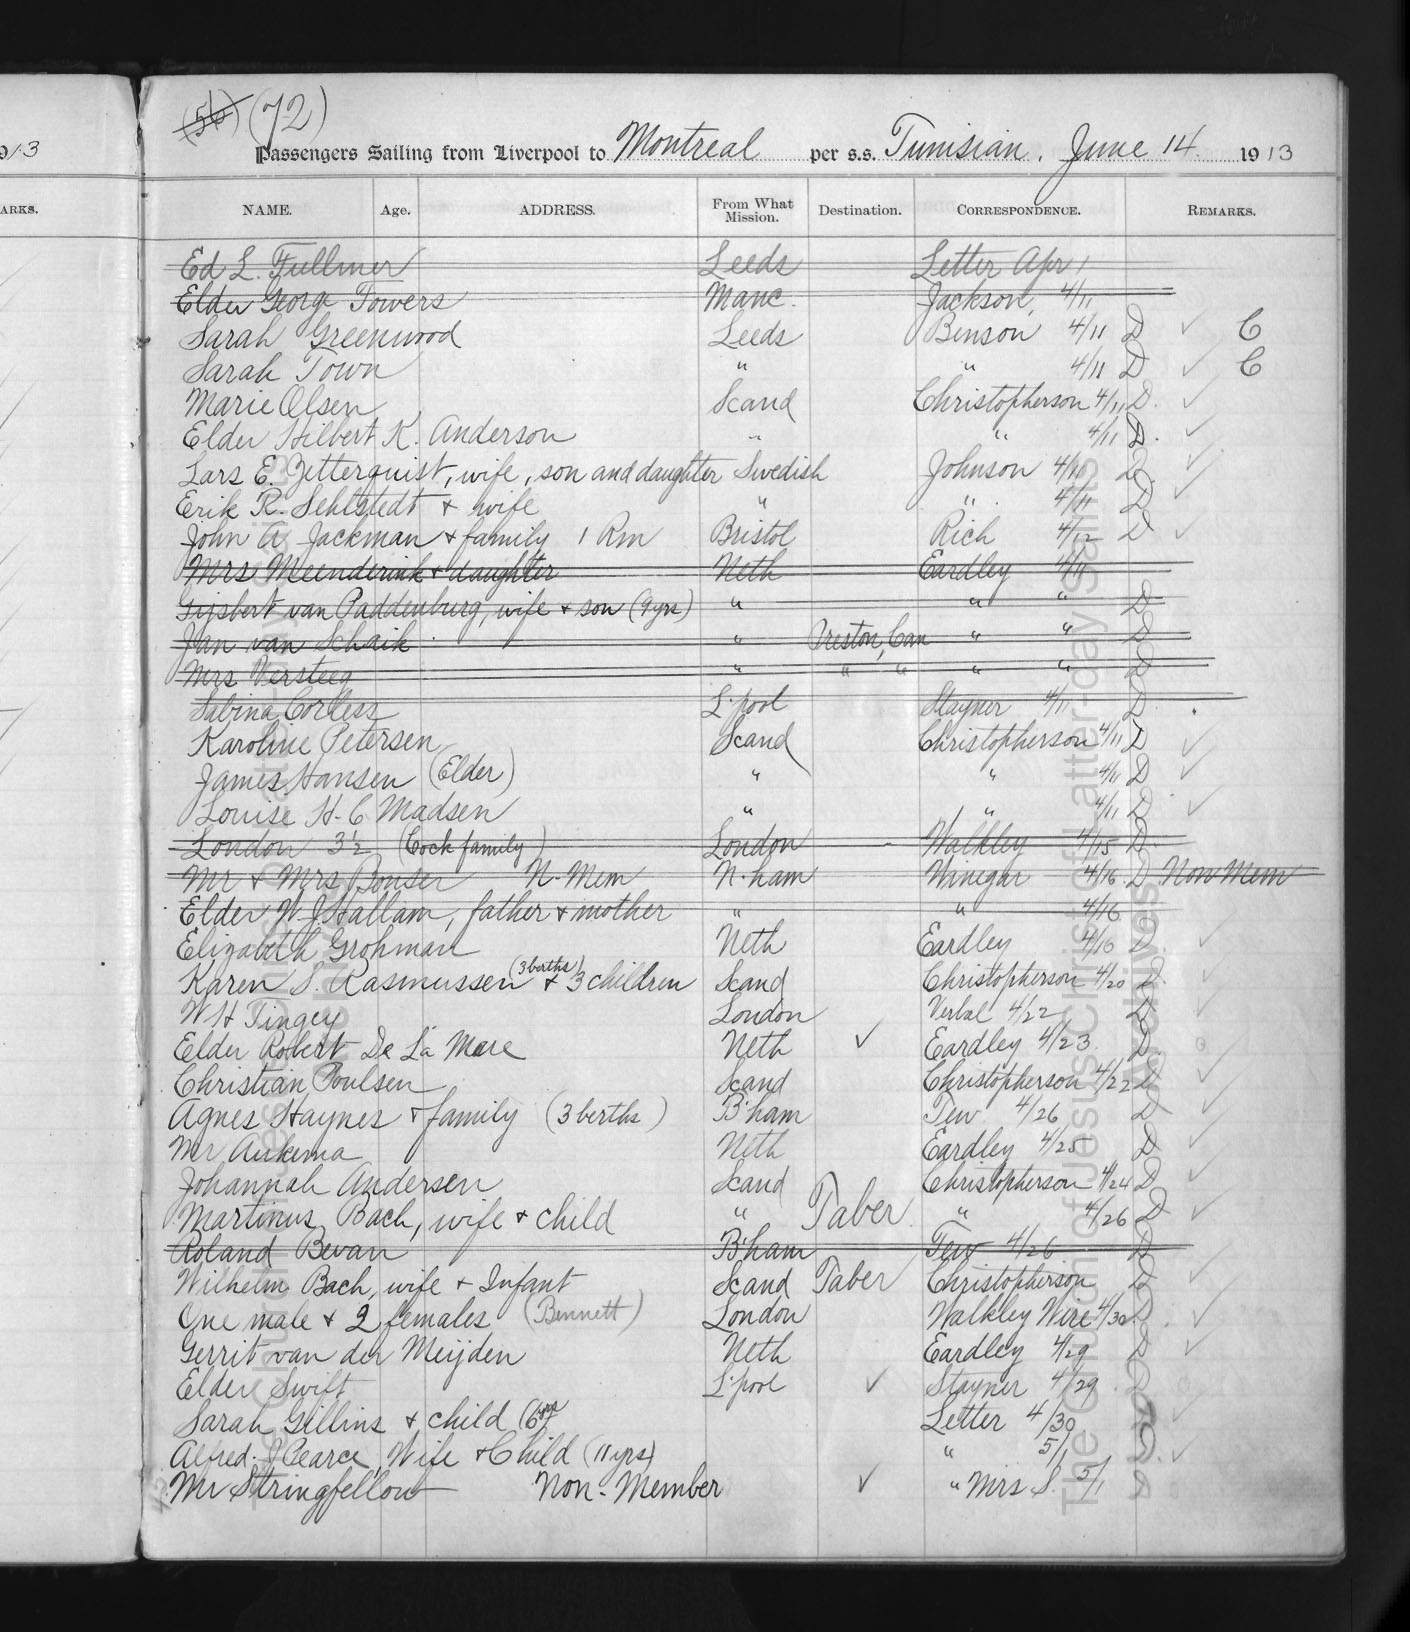 913
(56) (72)
Passengers Sailing from Liverpool to Montreal per s.s. Tunisian. June 14. 1913
ARKS.
NAME. Age. ADDRESS. From What Mission. Destination. CORRESPONDENCE. REMARKS.
Ed L. Fullmer Leeds Letter Apr 1
Elder George Towers Manc. Jackson, 4/11
Sarah Greenwood Leeds Benson 4/11 D ✓ C
Sarah Town " " 4/11 D ✓ C
Marie Olsen Scand Christopherson 4/11 D. ✓
Elder Hilbert K. Anderson " " 4/11 D. ✓
Lars E. Zetterquist, wife, son and daughter Swedish Johnson 4/11 D. ✓
Erik R. Sehlstedt & wife " " 4/11 D ✓
John A. Jackman & family 1 Rm Bristol Rich 4/12 D ✓
Mrs Meenderink & daughter Neth Eardley 4/11
Gijsbert van Paddenburg, wife & son (9yrs) " " " D
Jan van Schaik " Preston, Can " " D
Mrs Versteeg " " " " " D
Sabina Corless L'pool Stayner 4/11 D
Karoline Petersen Scand Christopherson 4/11 D ✓
James Hansen (Elder) " " 4/11 D ✓
Louise H. C Madsen " " 4/11 D ✓
London 3½ (Cock family) London Walkley 4/15 D.
Mr & Mrs Bonser N-Mem N.ham Winegar 4/16 D Non Mem
Elder W. J. Hallam, father & mother " " 4/16
Elizabeth Grohman Neth Eardley 4/16 D ✓
Karen S. Rasmussen (3 berths) & 3 children Scand Christopherson 4/20 D. ✓
W H Tingey London Verbal 4/22 D ✓
Elder Robert De La Mare Neth ✓ Eardley 4/23 D.
Christian Poulsen Scand Christopherson 4/22 D ✓
Agnes Haynes & family (3 berths) B'ham Tew 4/26 D ✓
Mr Aukema Neth Eardley 4/25 D ✓
Johannah Andersen Scand Christopherson 4/24 D ✓
Martinus Bach, wife & child " Taber " 4/26 D ✓
Roland Bevan B'ham Tew 4/26 D
Wilhelm Bach, wife & Infant Scand Taber Christopherson D ✓
One male & 2 females (Bennett) London Walkley Wire 4/30 D. ✓
Gerrit van der Meijden Neth Eardley 4/29 D ✓
Elder Swift L'pool ✓ Stayner 4/29 D
Sarah Gillins & child (6yrs Letter 4/30 D ✓
Alfred J Pearce, Wife & Child (11 yrs) " 5/1 D. ✓
Mr Stringfellow Non-Member ✓ " Mrs S. 5/1